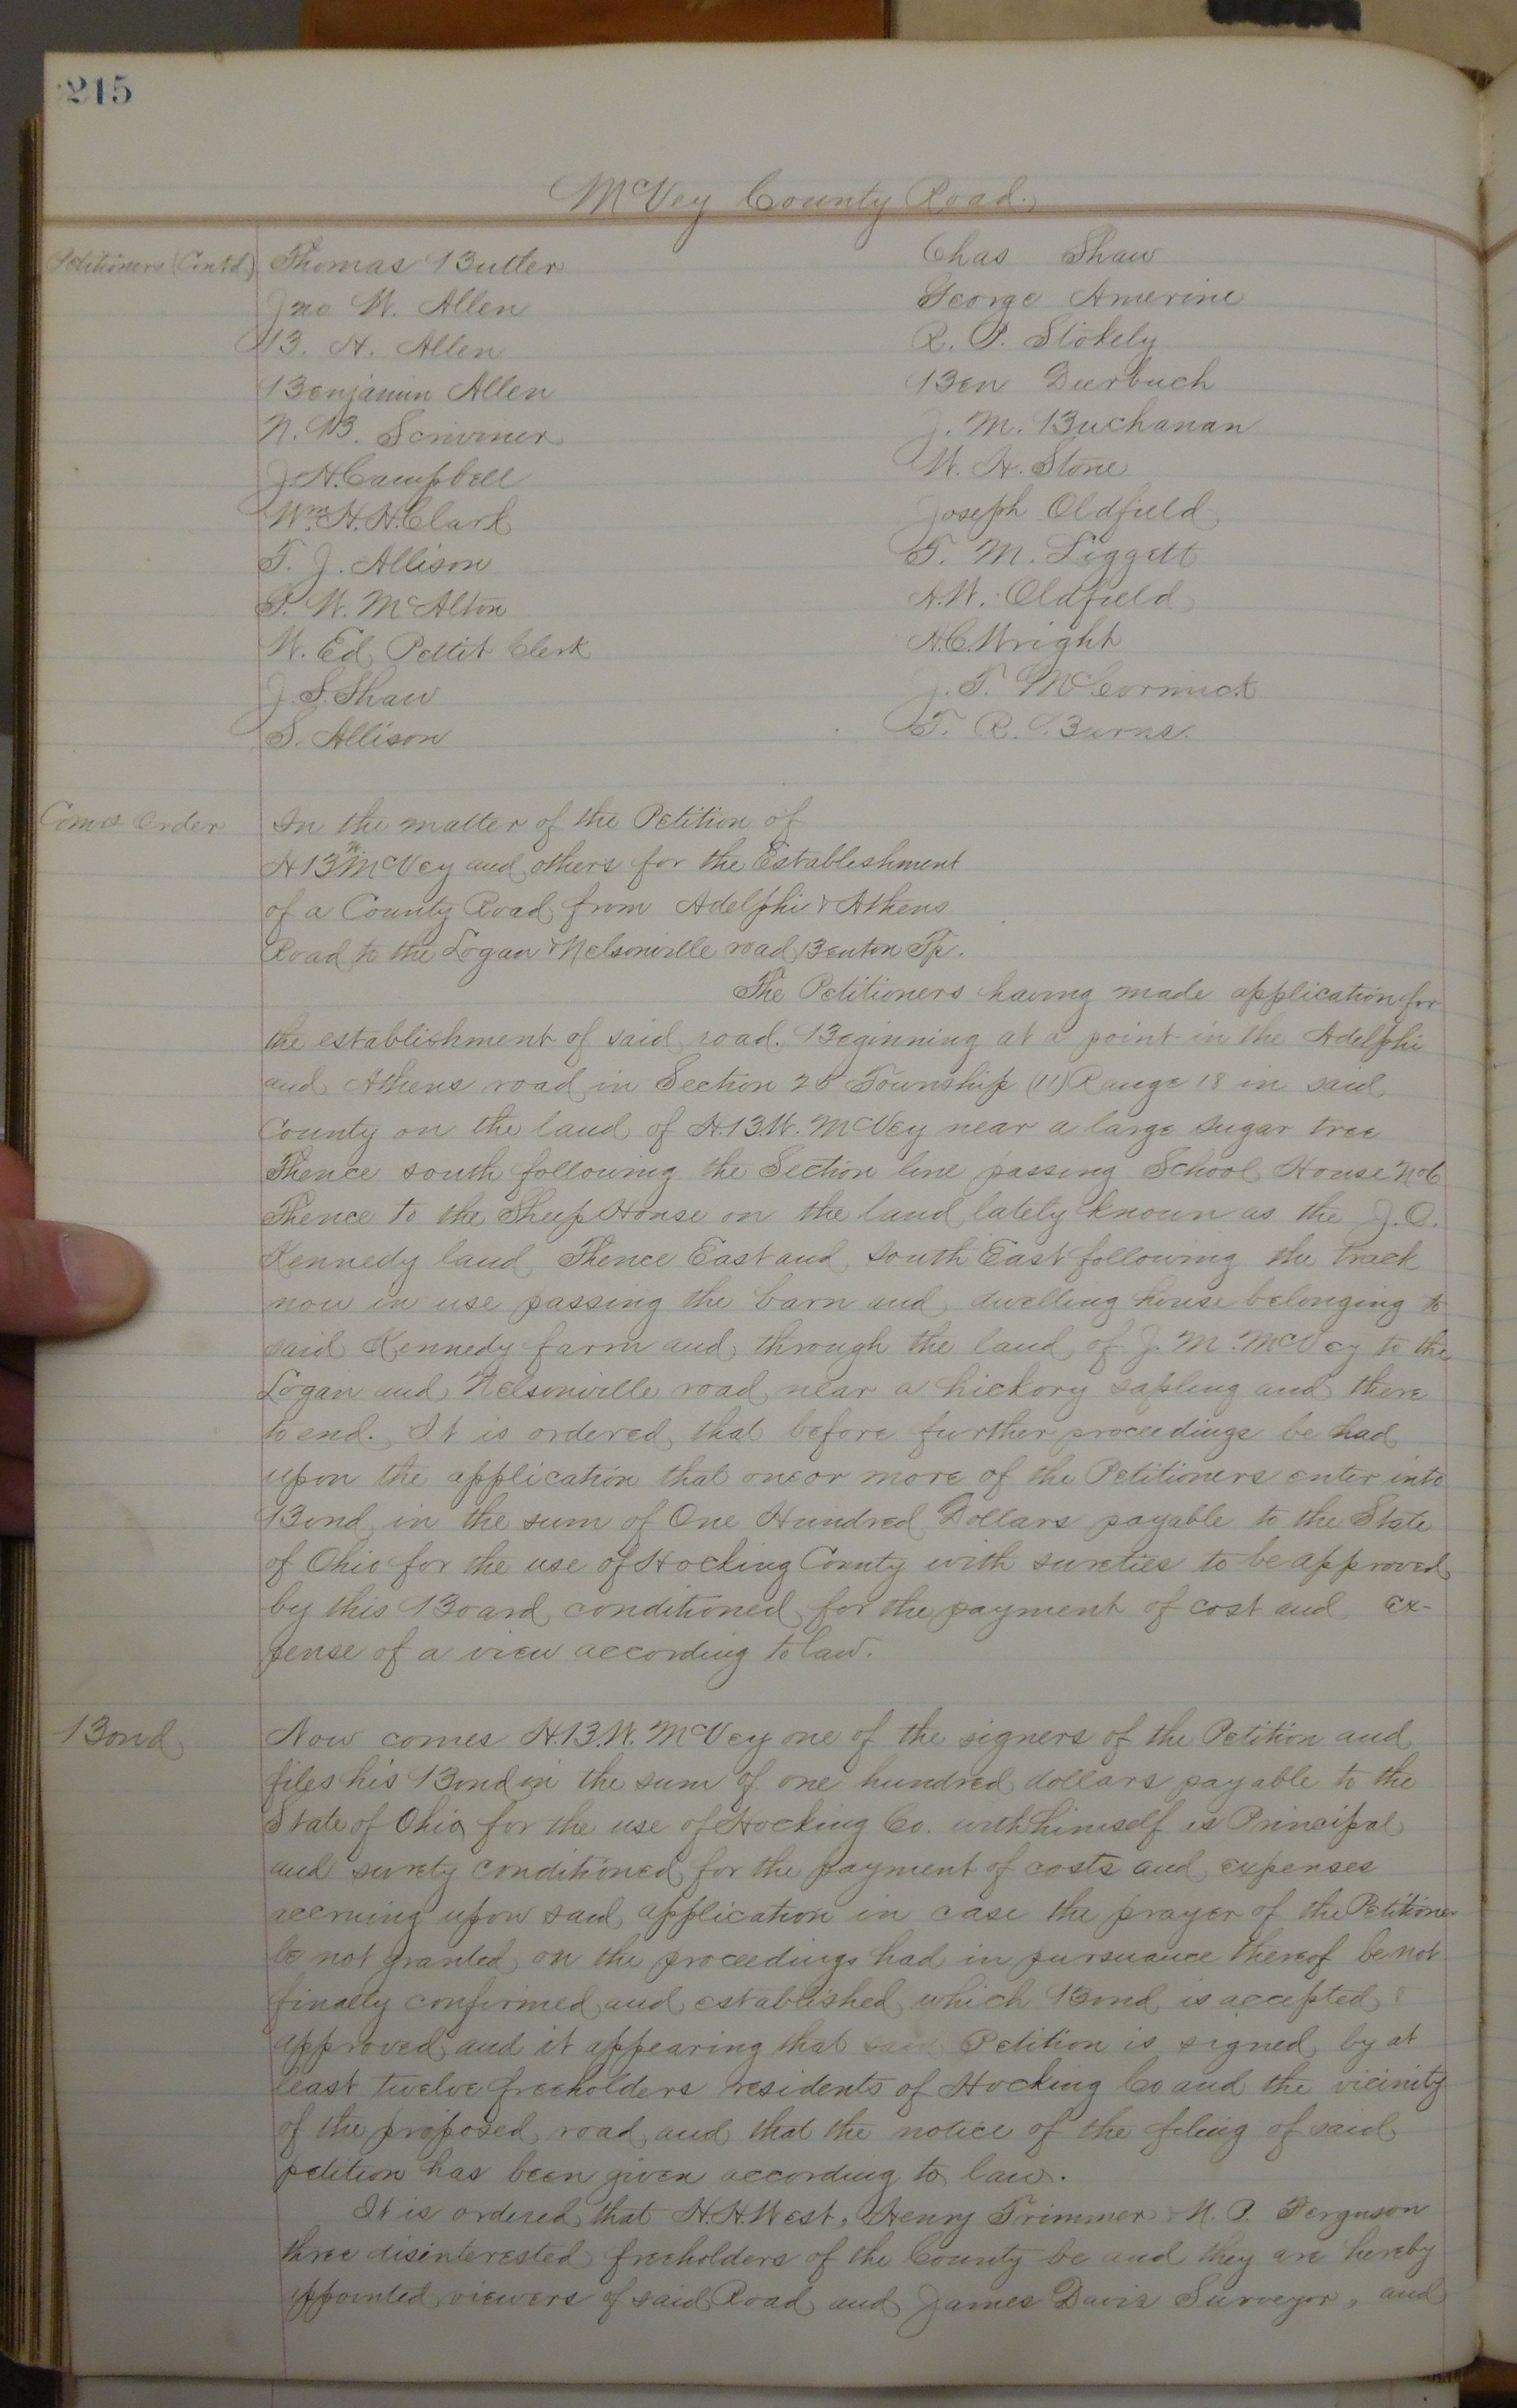 215
McVey County Road.
Petitioners (Contd.) Thomas Butler Chas Shaw
Jno W. Allen George Amerine
B. H. Allen R. P. Stokely
Benjamin Allen Ben Deerbuch
N. B. Scrivner J. M. Buchanan
J. H. Campbell W. H. Stone
Wm. H. H. Clark Joseph Oldfield
T. J. Allison T. M. Liggett
P. W. McAlton A. W. Oldfield
W. Ed. Pettit Clerk H. C. Wright
J. S. Shaw J. T. McCormick
S. Allison T. R. Burns.
Comrs Order In the matter of the Petition of
H B W. McVey and others for the Establishment
of a County Road from Adelphi & Athens
Road to the Logan & Nelsonville road Benton Tp.
The Petitioners having made application for
the establishment of said road. Beginning at a point in the Adelphi
and Athens road in Section 25 Township (11) Range 18 in said
County on the land of H. B. W. McVey near a large sugar tree
Thence south following the Section line passing School House No 6
Thence to the Sheep House on the land lately known as the J. C.
Kennedy land Thence East and South East following the track
now in use passing the barn and dwelling house belonging to
said Kennedy farm and through the land of J. M. McVey to the
Logan and Nelsonville road near a hickory sapling and there
to end. It is ordered that before further proceedings be had
upon the application that one or more of the Petitioners enter into
Bond in the sum of One Hundred Dollars payable to the State
of Ohio for the use of Hocking County with sureties to be approved
by this Board conditioned for the payment of cost and ex-
pense of a view according to law.
Bond Now comes H. B. W. McVey one of the signers of the Petition and
files his Bond in the sum of one hundred dollars payable to the
State of Ohio for the use of Hocking Co. with himself as Principal
and surety conditioned for the payment of costs and expenses
accruing upon said application in case the prayer of the Petitioner
be not granted on the proceedings had in pursuance thereof be not
finally confirmed and established which Bond is accepted &
approved and it appearing that said Petition is signed by at
least twelve freeholders residents of Hocking Co and the vicinity
of the proposed road and that the notice of the filing of said
petition has been given according to law.
It is ordered that H. H. West, Henry Trimmer & M. P. Ferguson
three disinterested freeholders of the County be and they are hereby
appointed viewers of said Road and James Davis Surveyor, and